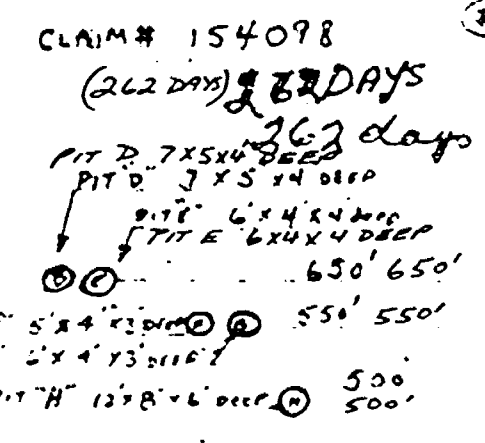 CLAIM # 154098
(262 DAYS) 262 DAYS
262 days
PIT D 7X5X4 DEEP
PIT "D" 7 X 5 X4 DEEP
PIT "E" 6 X 4 X 4 DEEP
PIT E 6X4X4 DEEP
650' 650'
5'X4'X3' DEEP 550' 550'
6'X4'X3' DEEP
PIT "H" 12'X8'X6' DEEP H 500'
500'